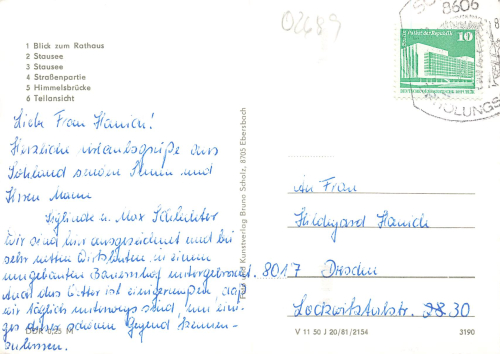 02689
8606
HOLUNGS
Palast der Republik
10
1 Blick zum Rathaus
2 Stausee
3 Stausee
4 Straßenpartie
5 Himmelsbrücke
6 Teilansicht
Liebe Frau Hanich!
Herzliche Urlaubsgrüße aus
Sohland senden Ihnen und
Ihrem Mann
Sieglinde u. Max Schlechter
Wir sind hier ausgezeichnet und bei
sehr netten Wirtsleuten in einem
umgebauten Bauernhof untergebracht.
Auch das Wetter ist einigermaßen, daß
wir täglich unterwegs sind, um eini-
ges dieser schönen Gegend kennen-
zulernen.
DDR 0,25 M
Foto und Kunstverlag Bruno Scholz, 8705 Ebersbach
An Frau
Hildegard Hanich
8017 Dresden
Lockwitztalstr. 30
V 11 50 J 20/81/2154
3190